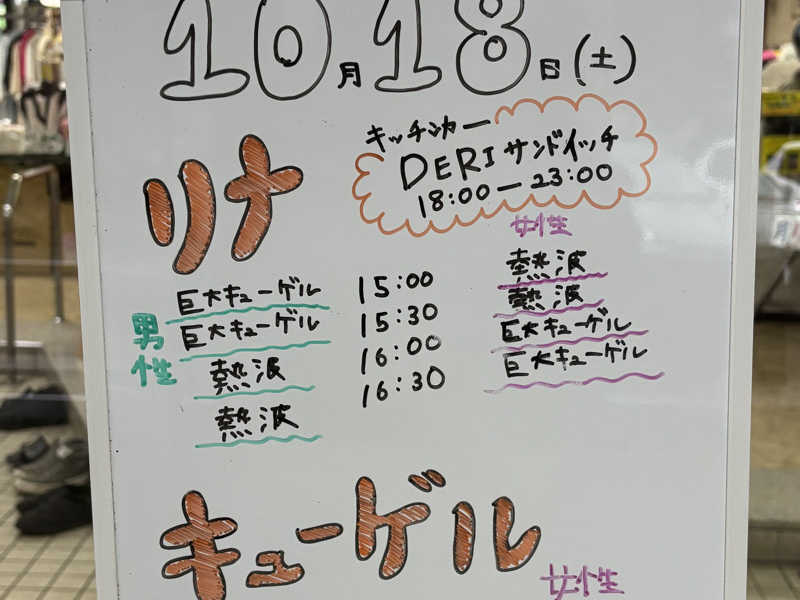 10月18日(土)
キッチンカー
DERIサンドイッチ
18:00ー23:00
リナ
女性
男性
巨大キューゲル 15:00 熱波
巨大キューゲル 15:30 熱波
熱波 16:00 巨大キューゲル
熱波 16:30 巨大キューゲル
キューゲル
女性